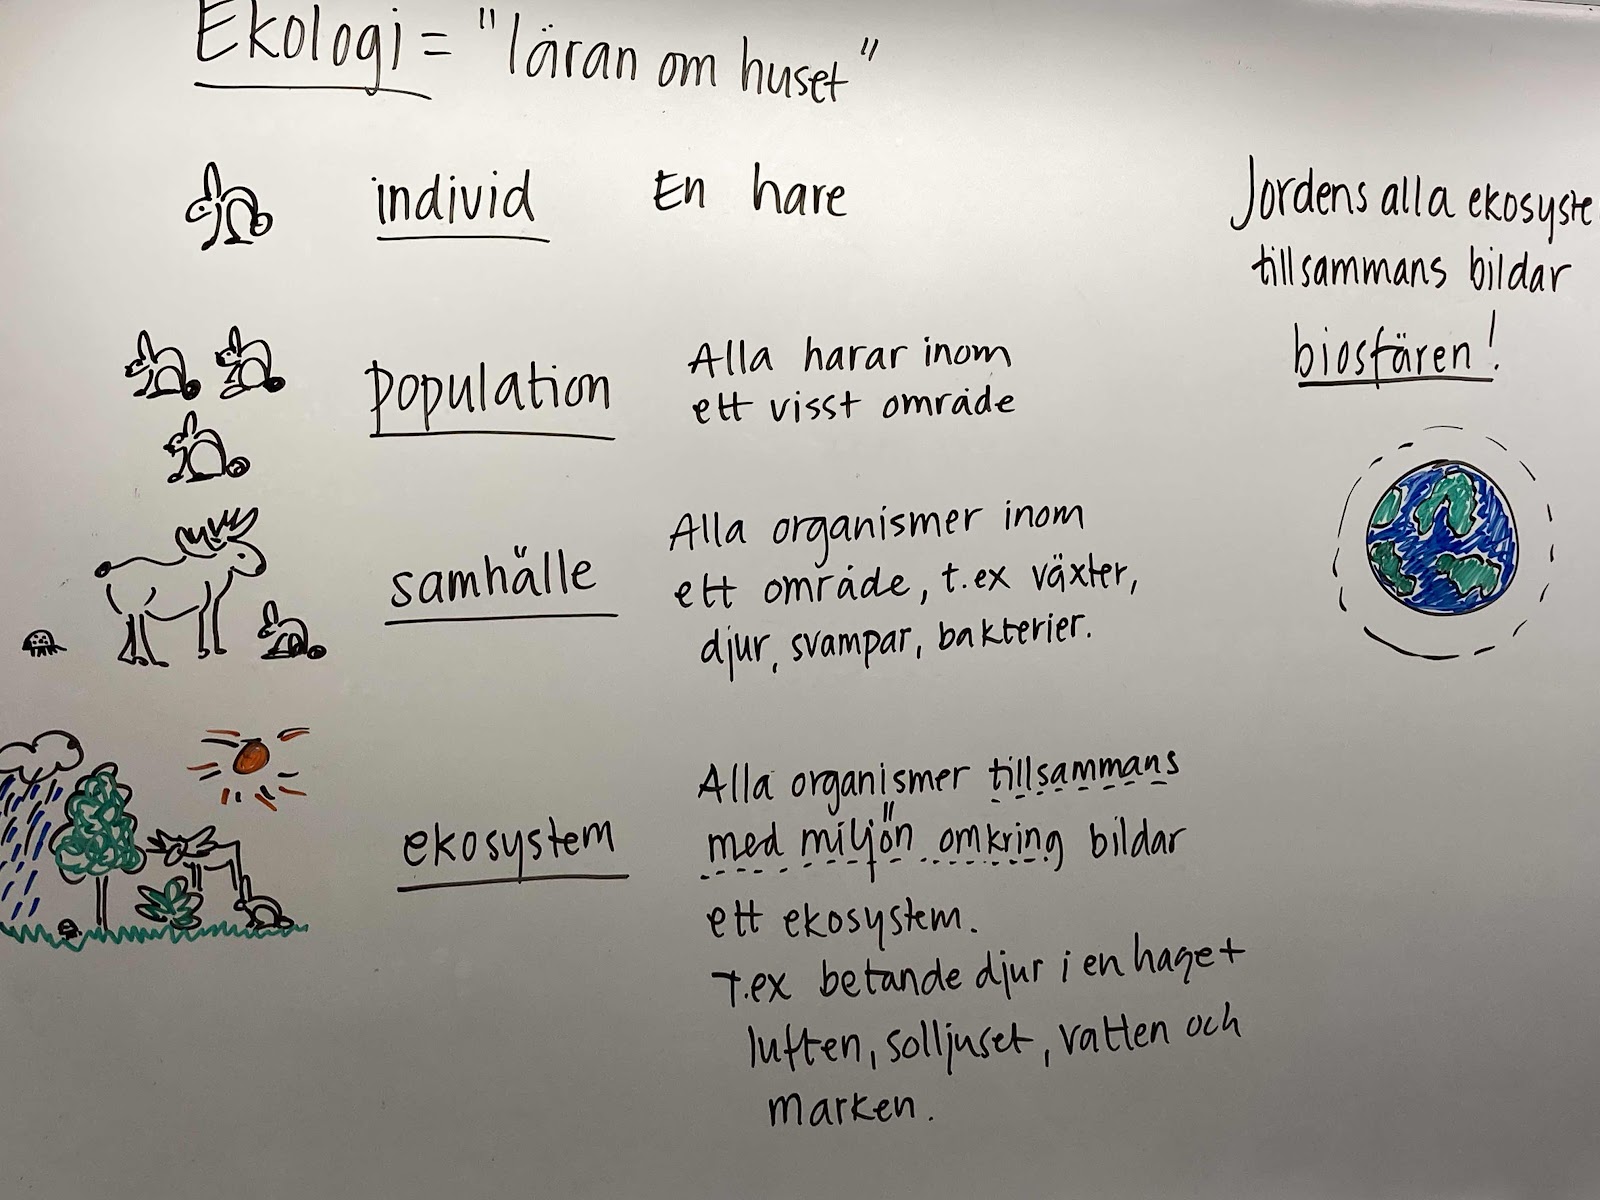 Ekologi = "läran om huset"
individ En hare
population Alla harar inom
ett visst område
samhälle Alla organismer inom
ett område, t.ex växter,
djur, svampar, bakterier.
ekosystem Alla organismer tillsammans
med miljön omkring bildar
ett ekosystem.
T.ex betande djur i en haget
luften, solljuset, vatten och
marken.
Jordens alla ekosyste
tillsammans bildar
biosfären!